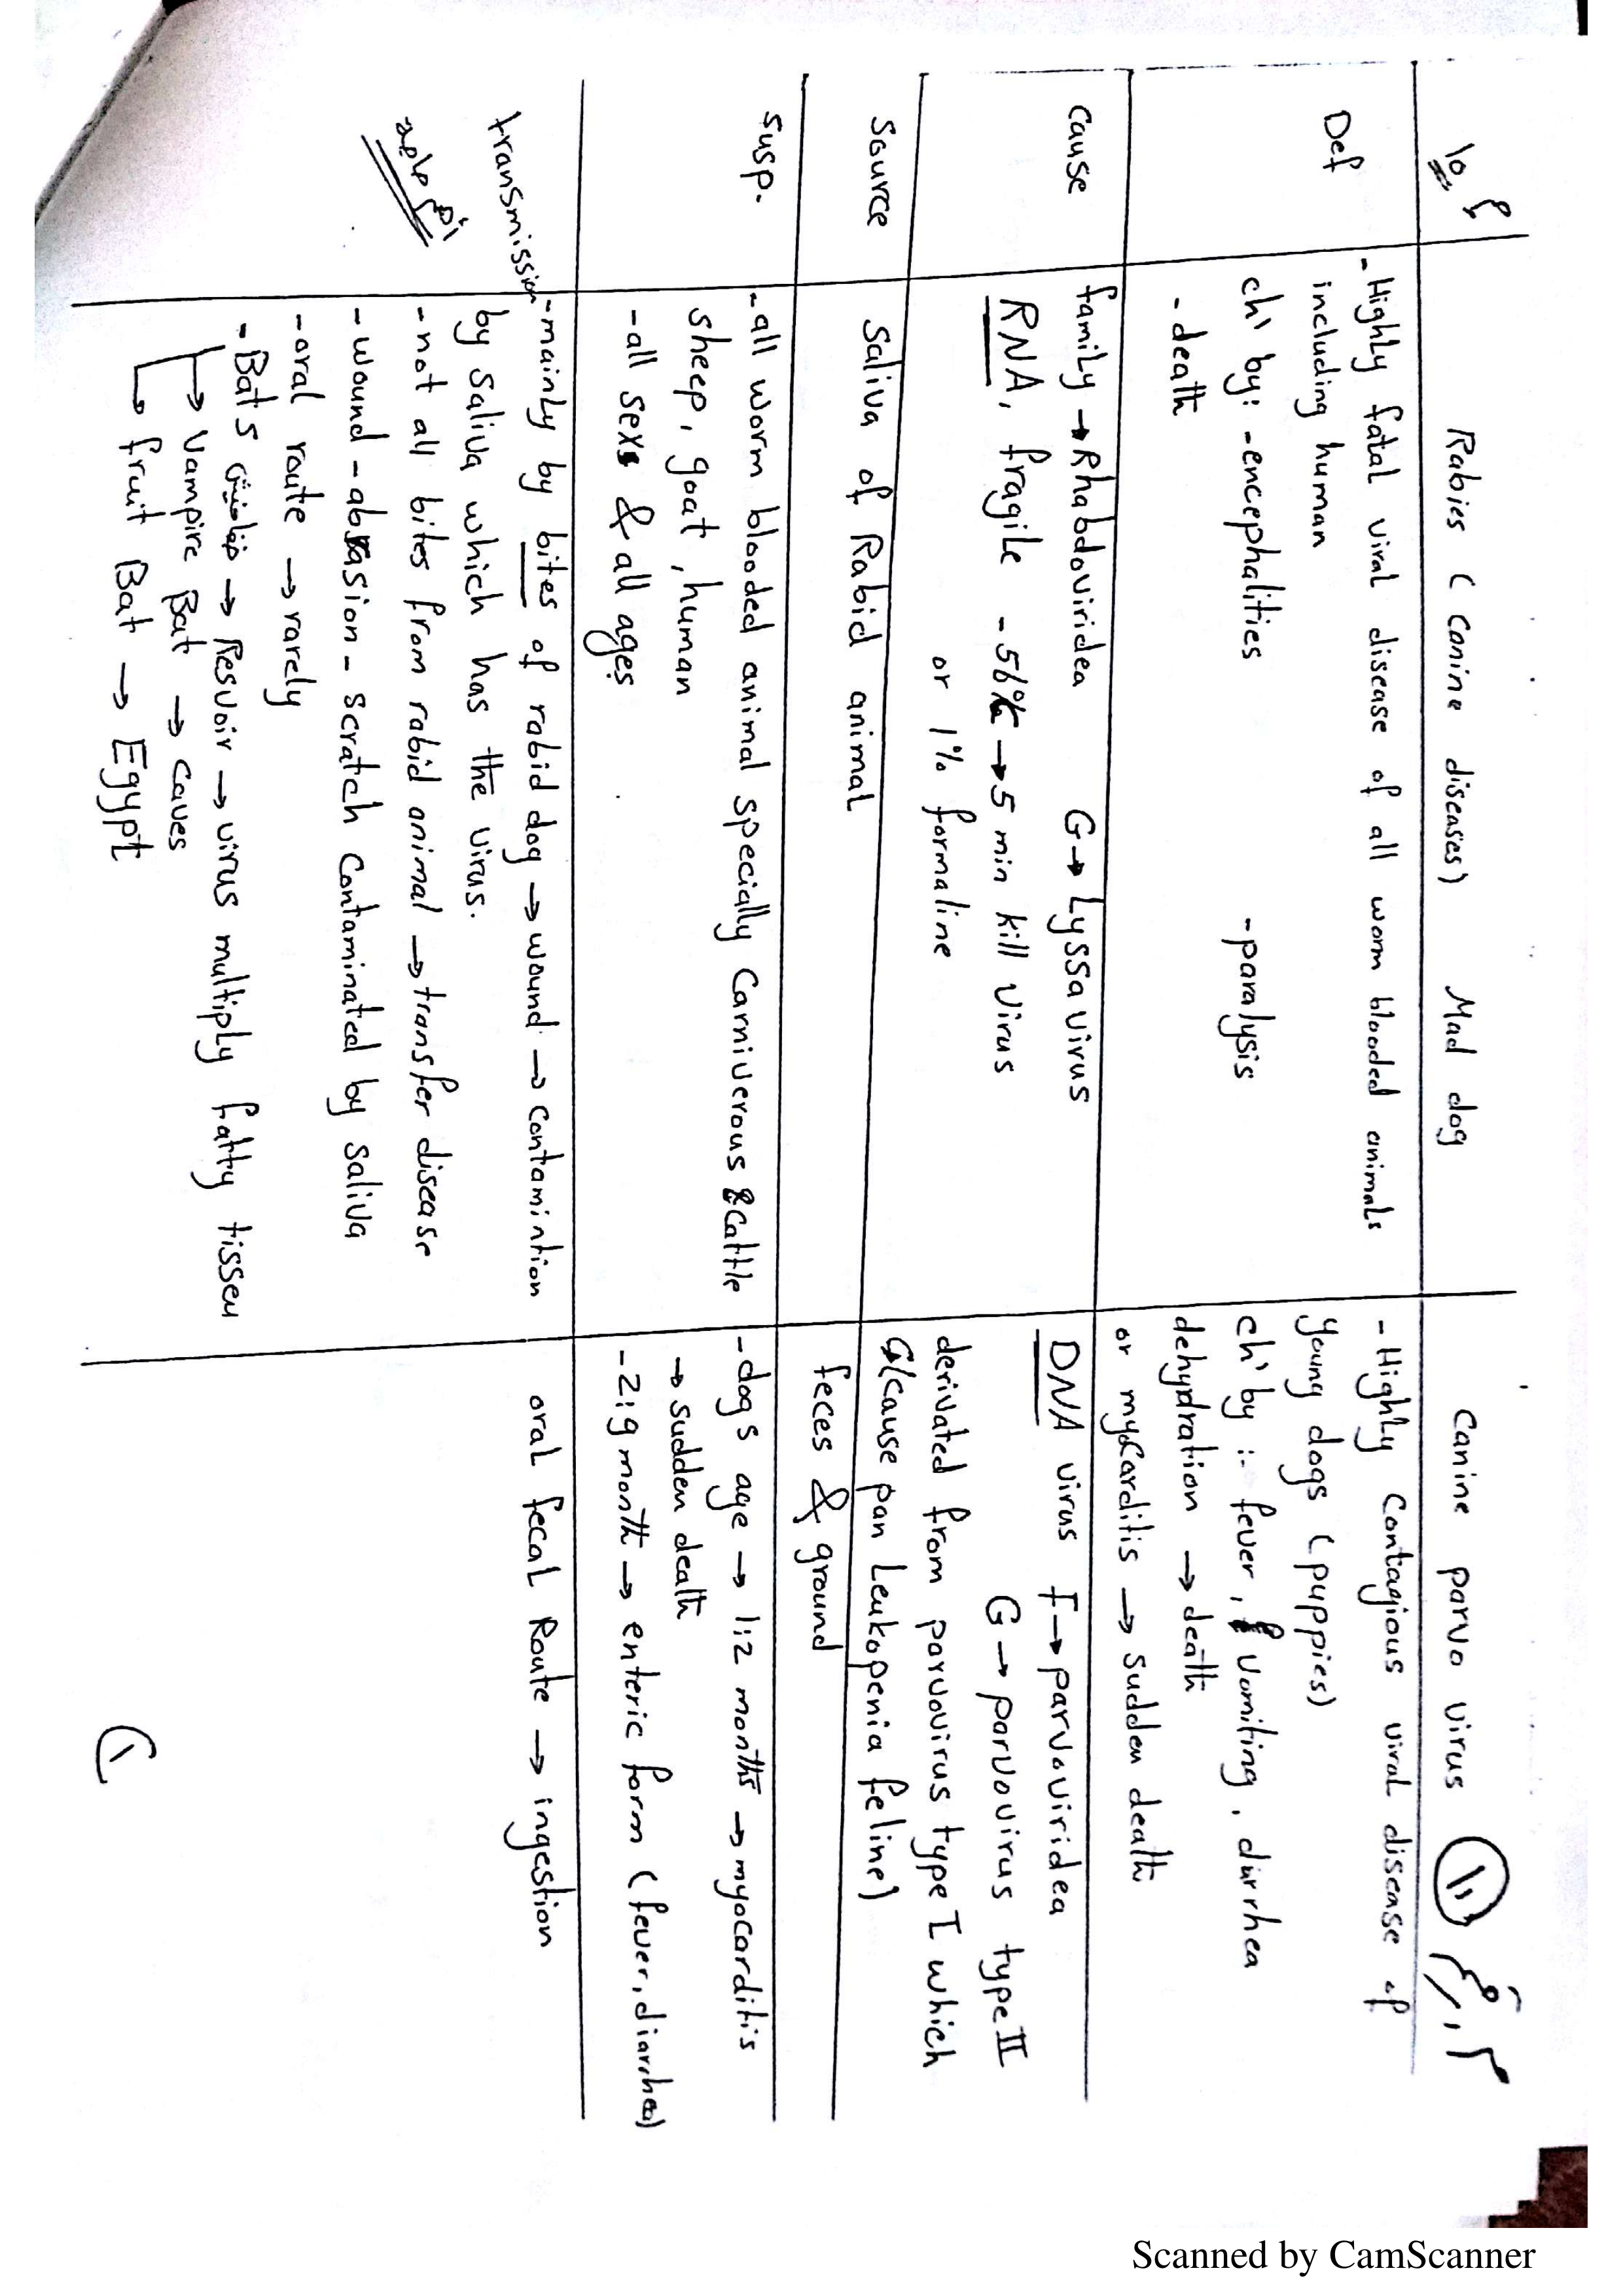 Rabies ( Canine diseases) Mad dog
Canine parvo virus
Def
- Highly fatal viral disease of all worm blooded animals
including human
ch' by: -encephalities -paralysis
- death
- Highly Contagious viral disease of
young dogs (puppies)
ch' by :- fever, vomiting, diarrhea
dehydration → death
or myocarditis → sudden death
Cause
family → Rhabdoviridea G → Lyssa virus
RNA, fragile - 56°c → 5 min kill virus
or 1% formaline
DNA virus F → parvoviridea
G → parvovirus type II
derivated from parvovirus type I which
cause pan Leukopenia feline)
Source
Saliva of Rabid animal
feces & ground
Susp.
- all worm blooded animal specially Carniverous & Cattle
sheep, goat, human
- all sexs & all ages
- dogs age → 1:2 months → myocarditis
→ sudden death
- 2:9 month → enteric form (fever, diarrhea)
transmission
- mainly by bites of rabid dog → wound → contamintion
by saliva which has the virus.
- not all bites from rabid animal → transfer disease
- wound - abrasion - scratch Contaminated by saliva
- oral route → rarely
- Bats خفافيش → Resvoir → virus multiply fatty tisseu
↳ Vampire Bat → caves
↳ fruit Bat → Egypt
oral fecal Route → ingestion
Scanned by CamScanner